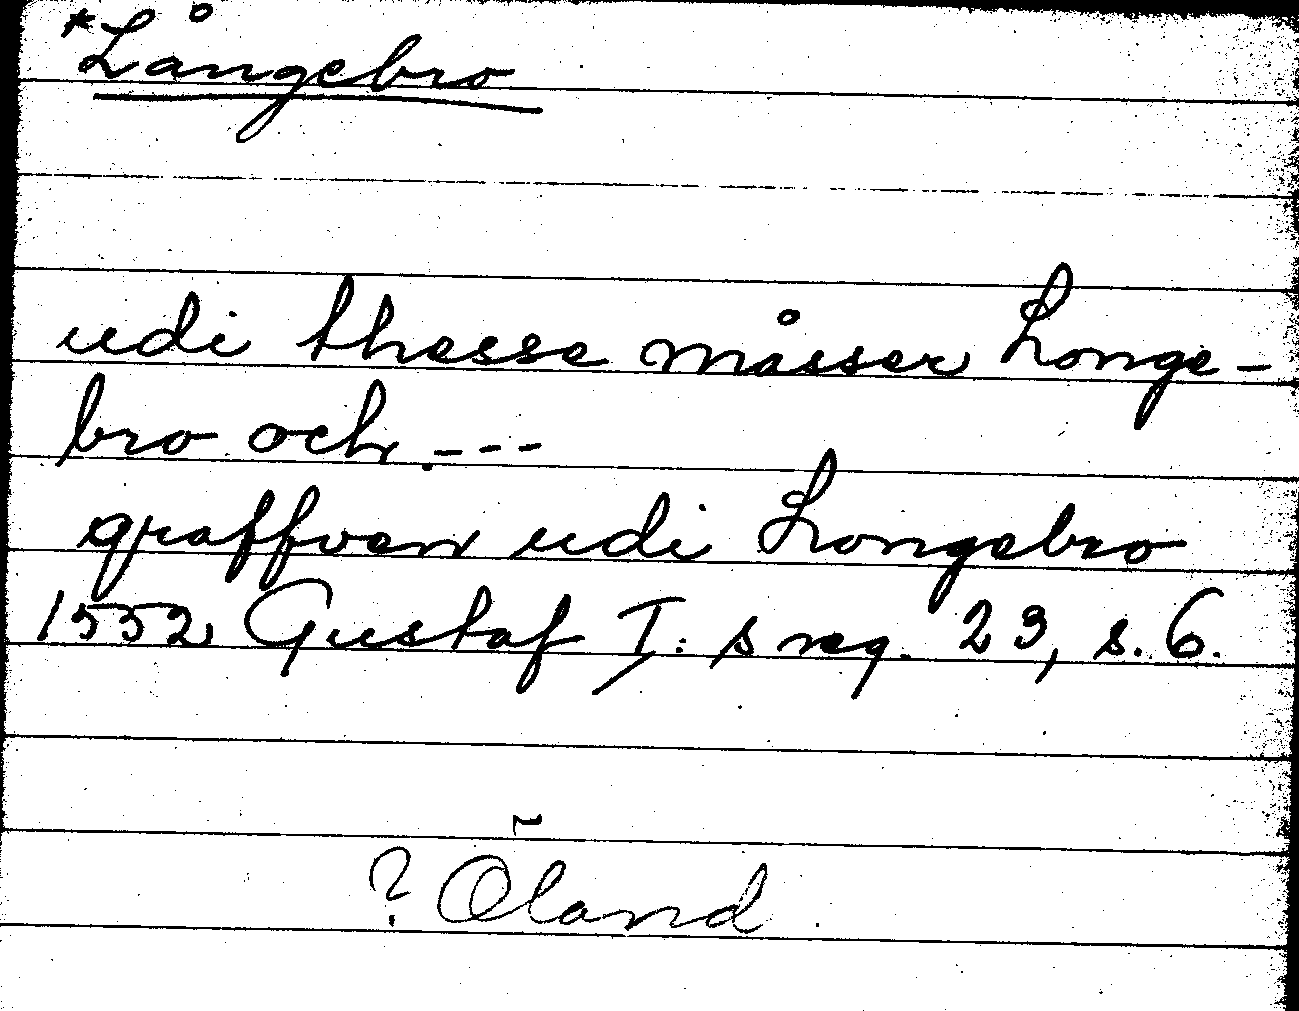 *Långebro
udi thesse måsser Longe-
bro och ---
graffven udi Longebro
1552 Gustaf I:s reg. 23, s. 6.
? Öland